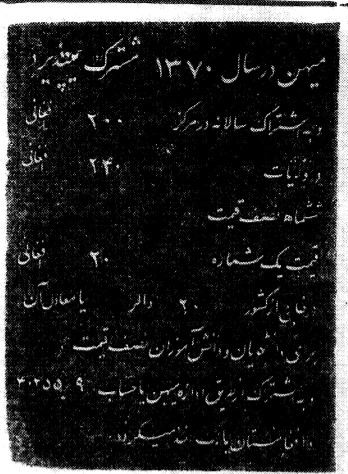 میهن در سال ۱۳۷۰ مشترک میپذیرد
وجه اشتراک سالانه در مرکز ۲۰۰ افغانی
در ولایات ۲۴۰ افغانی
ششماه نصف قیمت
قیمت یک شماره ۲۰ افغانی
در خارج از کشور ۲۰ دالر یا معادل آن
برای محصلان و دانش آموزان نصف قیمت
وجه اشتراک از طریق اداره میهن یا حساب
د افغانستان بانک اخذ میگردد.